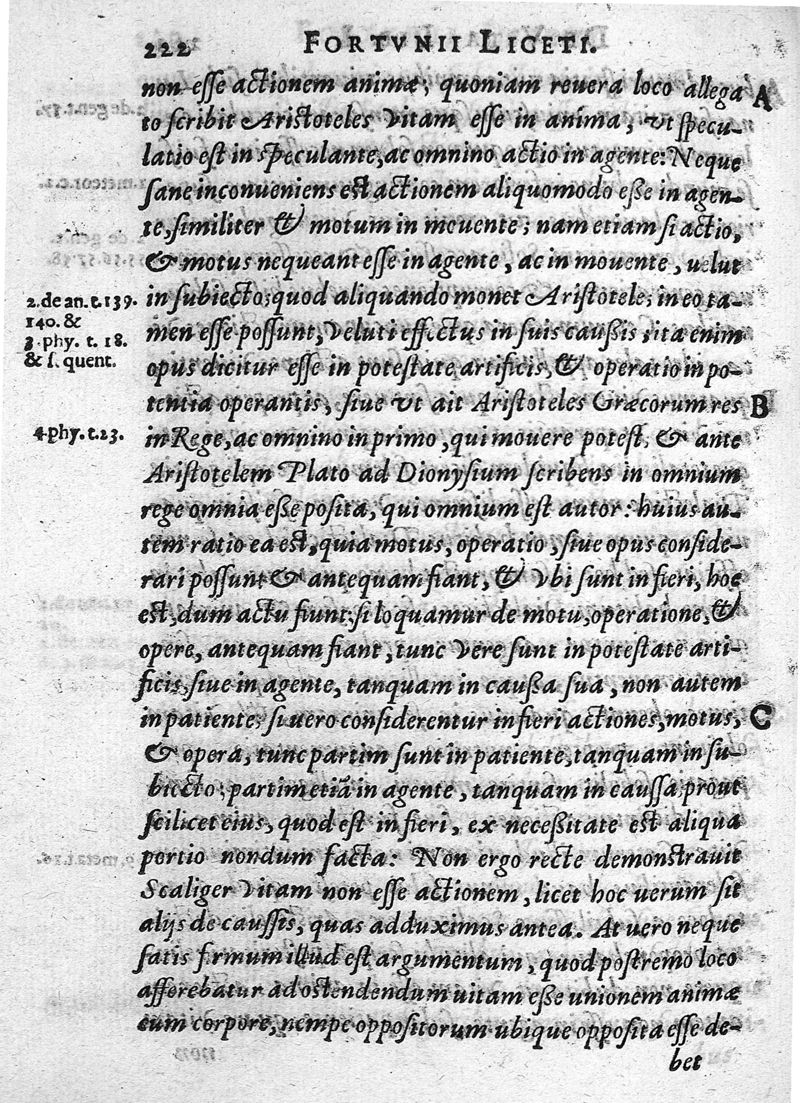 222 FORTVNII LICETI.
non esse actionem animæ, quoniam reuera loco allega A
to scribit Aristoteles vitam esse in anima, vt specu-
latio est in speculante, ac omnino actio in agente: Neque
sane inconueniens est actionem aliquomodo esse in agen-
te, similiter & motum in mouente; nam etiam si actio,
& motus nequeant esse in agente, ac in mouente, velut
2. de an. t. 139. in subiecto, quod aliquando monet Aristoteles, in eo ta-
140. &
men esse possunt, veluti effectus in suis caussis, ita enim
3. phy. t. 18.
& s. quent. opus dicitur esse in potestate artificis, & operatio in po-
tentia operantis, siue vt ait Aristoteles Græcorum res B
4. phy. t. 23. in Rege, ac omnino in primo, qui mouere potest, & ante
Aristotelem Plato ad Dionysium scribens in omnium
rege omnia esse posita, qui omnium est autor: huius au-
tem ratio ea est, quia motus, operatio, siue opus conside-
rari possunt & antequam fiant, & vbi sunt in fieri, hoc
est, dum actu fiunt; si loquamur de motu, operatione, &
opere, antequam fiant, tunc vere sunt in potestate arti-
ficis, siue in agente, tanquam in caussa sua, non autem
in patiente; si uero considerentur in fieri actiones, motus, C
& opera, tunc partim sunt in patiente, tanquam in su-
biecto; partim etiã in agente, tanquam in caussa prout
scilicet eius, quod est in fieri, ex necessitate est aliqua
portio nondum facta: Non ergo recte demonstrauit
Scaliger vitam non esse actionem, licet hoc uerum sit
alijs de caussis, quas adduximus antea. At uero neque
satis firmum illud est argumentum, quod postremo loco
afferebatur ad ostendendum uitam esse unionem animæ
cum corpore, nempe oppositorum ubique opposita esse de-
bet